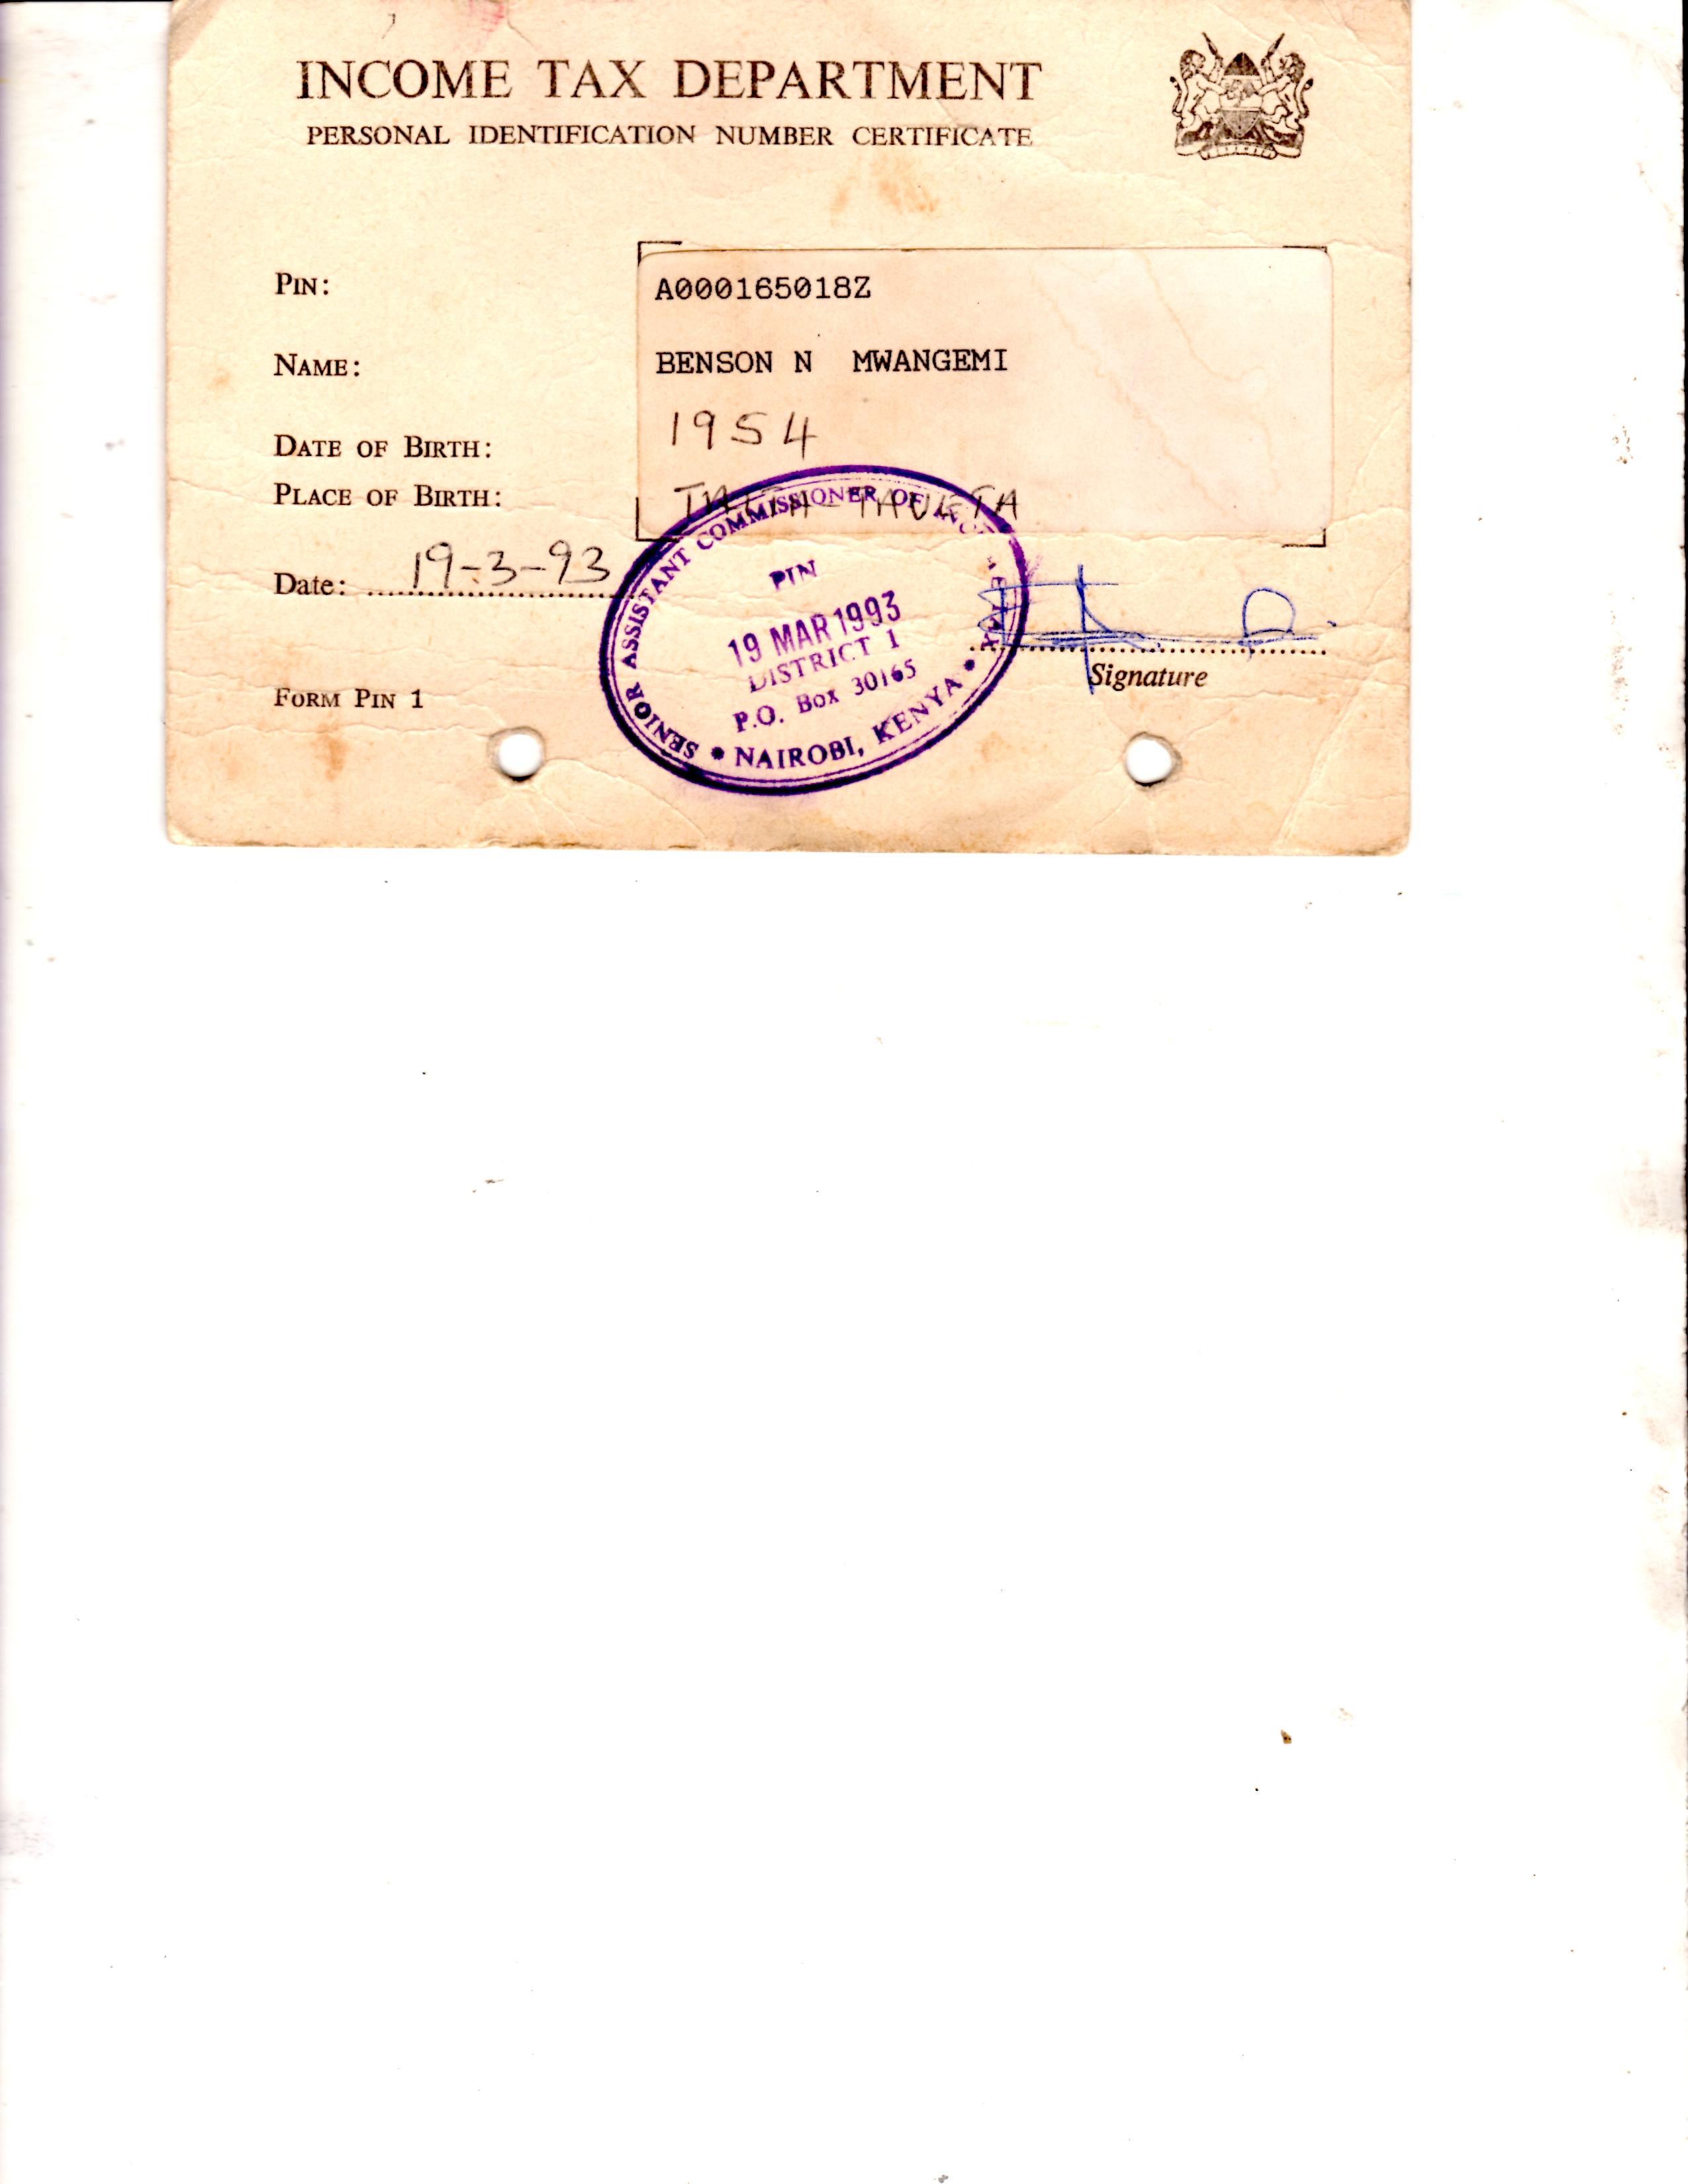 INCOME TAX DEPARTMENT
PERSONAL IDENTIFICATION NUMBER CERTIFICATE
PIN: A000165018Z
NAME: BENSON N MWANGEMI
DATE OF BIRTH: 1954
PLACE OF BIRTH: TAITA-TAVETA
Date: 19-3-93
SENIOR ASSISTANT COMMISSIONER OF INCOME TAX
PIN
19 MAR 1993
DISTRICT 1
P.O. Box 30165
* NAIROBI, KENYA *
Signature
FORM PIN 1